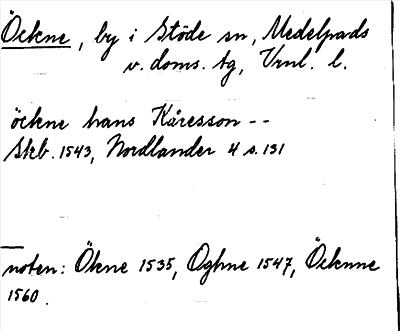 Öckne, by i Stöde sn, Medelpads
v. doms. tg, Vrnl. l.
öckne hans Kåresson --
Skb. 1543, Nordlander 4 s. 131
noten: Ökne 1535, Oghne 1547, Öcknne
1560.